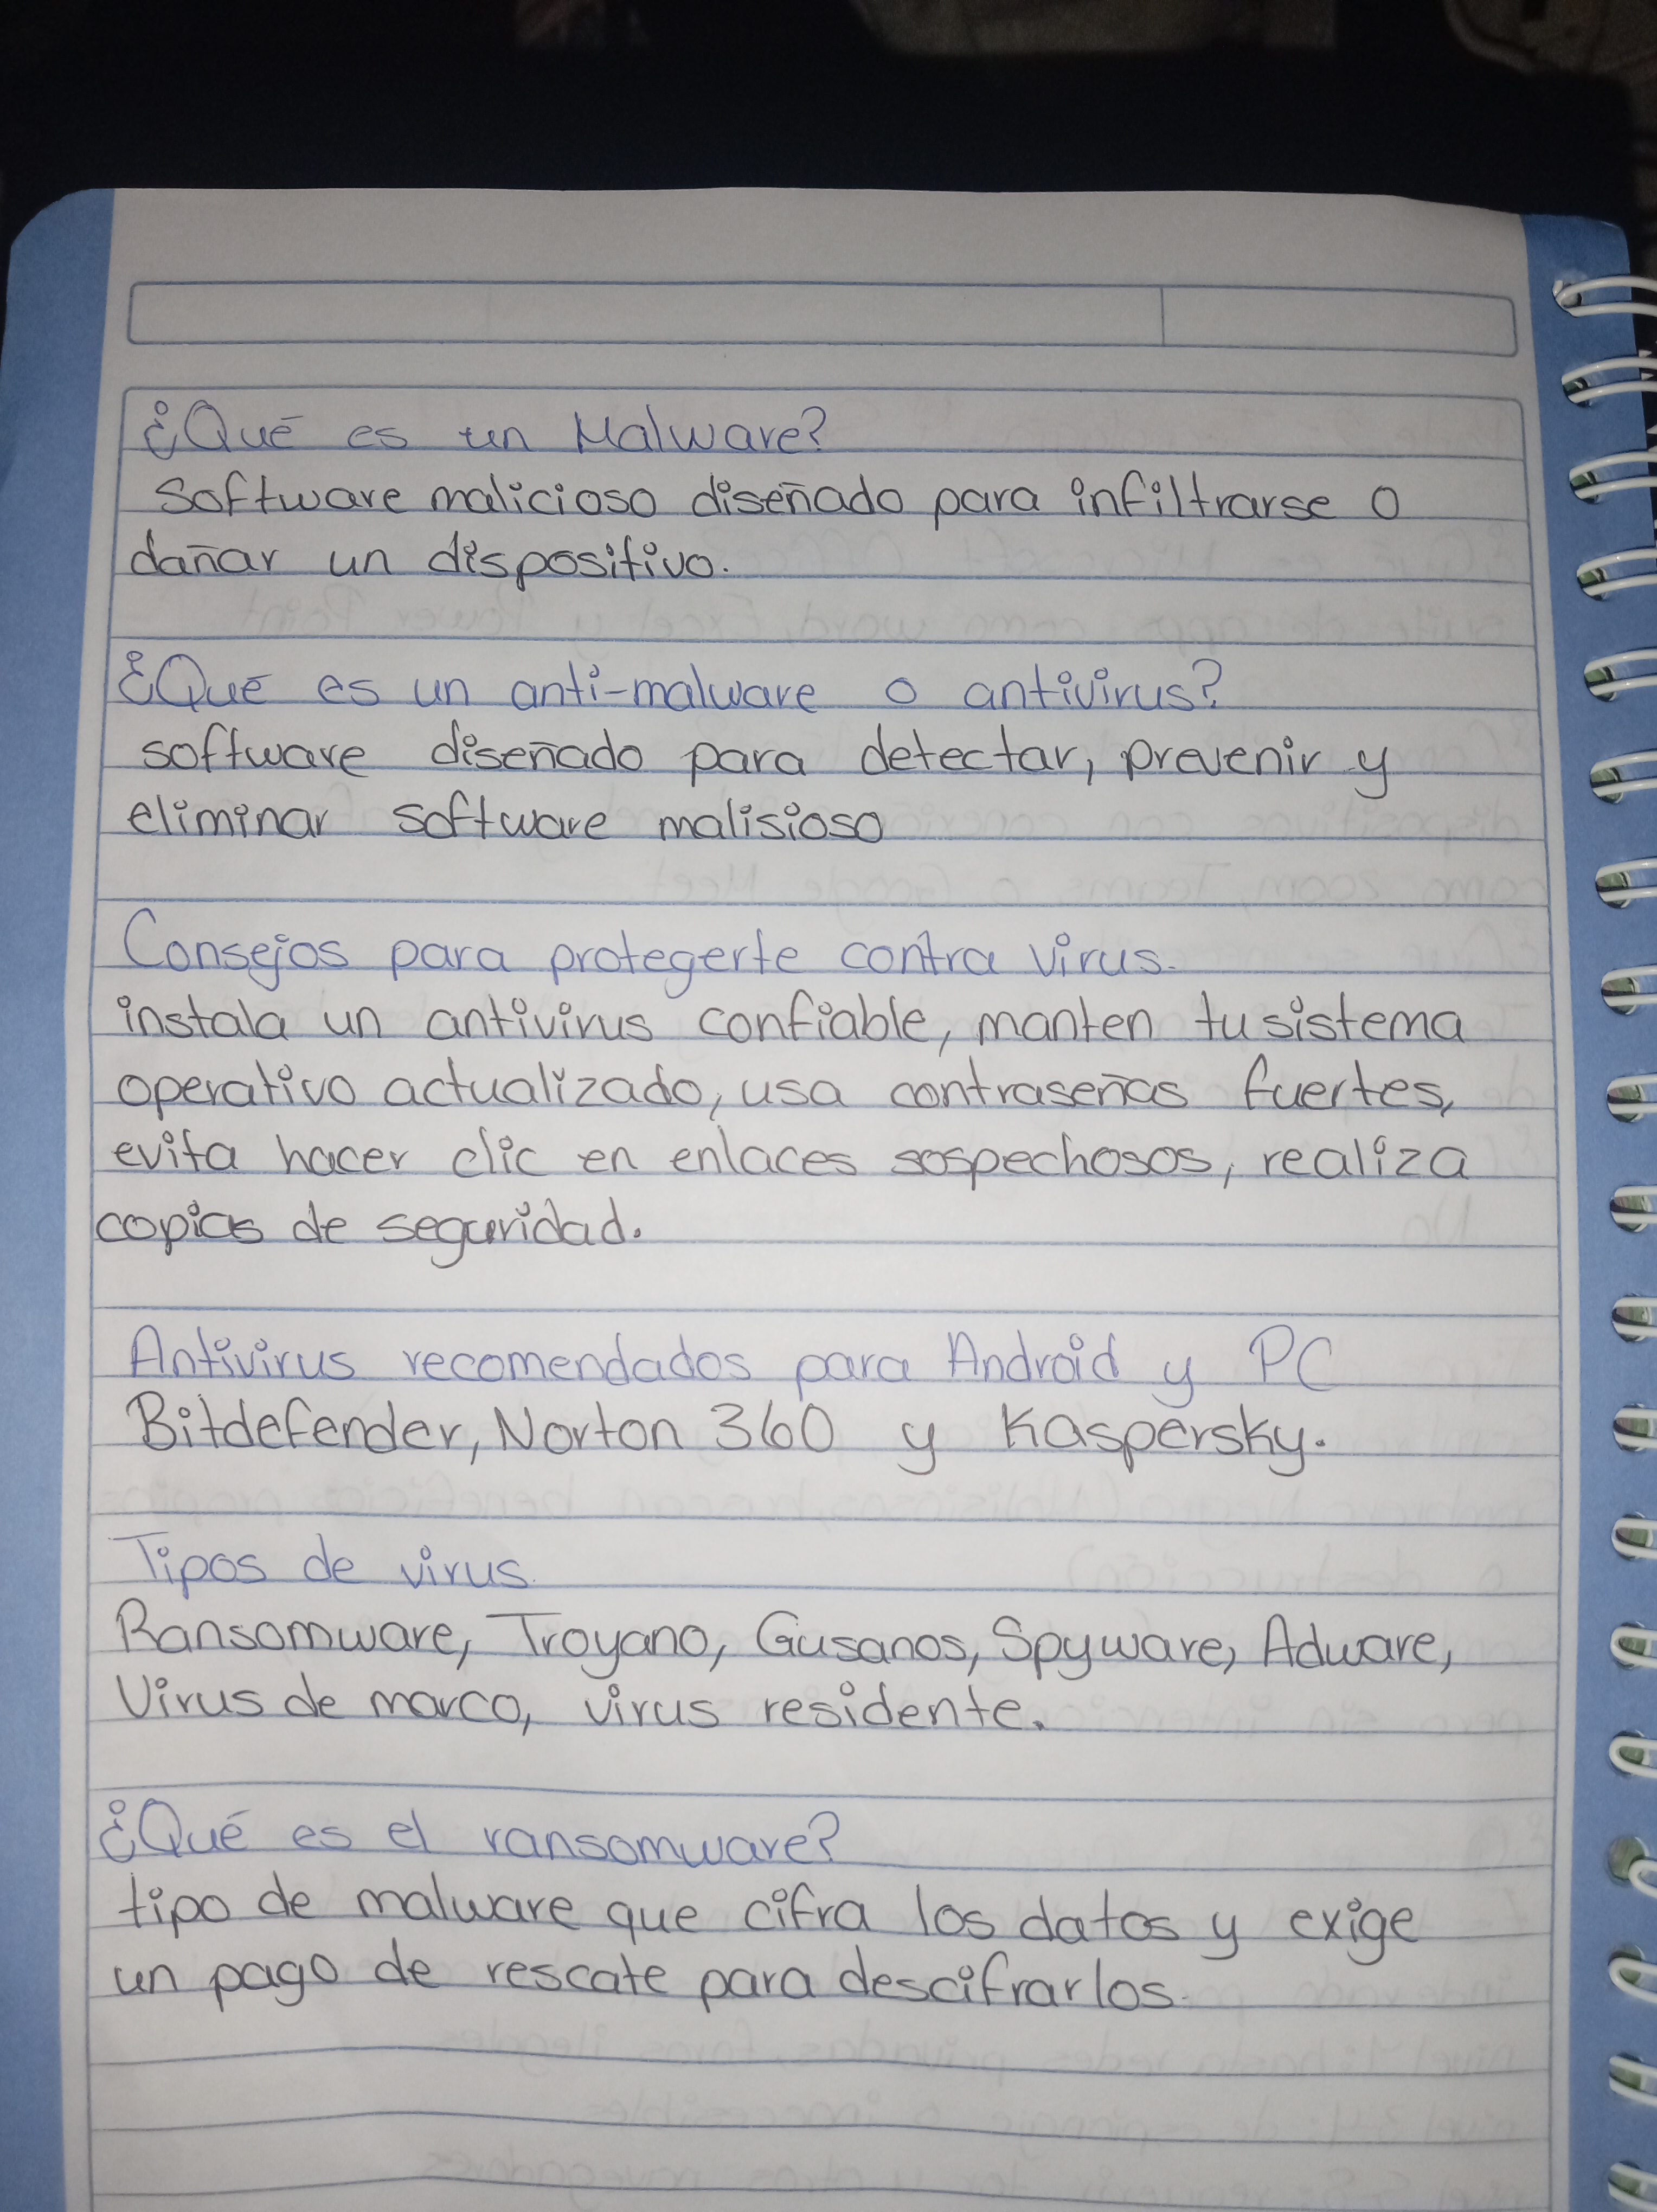 ¿Qué es un Malware?
Software malicioso diseñado para infiltrarse o
dañar un dispositivo.
¿Qué es un anti-malware o antivirus?
software diseñado para detectar, prevenir y
eliminar software malisioso
Consejos para protegerte contra virus.
instala un antivirus confiable, manten tu sistema
operativo actualizado, usa contraseñas fuertes,
evita hacer clic en enlaces sospechosos, realiza
copias de seguridad.
Antivirus recomendados para Android y PC
Bitdefender, Norton 360 y Kaspersky.
Tipos de virus.
Ransomware, Troyano, Gusanos, Spyware, Adware,
Virus de marco, virus residente.
¿Qué es el ransomware?
tipo de malware que cifra los datos y exige
un pago de rescate para descifrarlos.